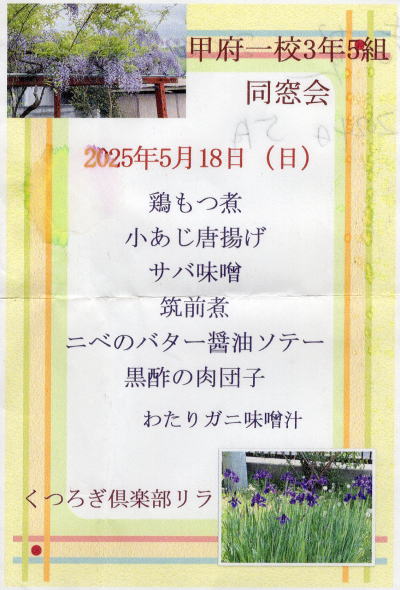 甲府一校3年5組
同窓会
2025年5月18日（日）
鶏もつ煮
小あじ唐揚げ
サバ味噌
筑前煮
ニベのバター醤油ソテー
黒酢の肉団子
わたりガニ味噌汁
くつろぎ倶楽部リラ